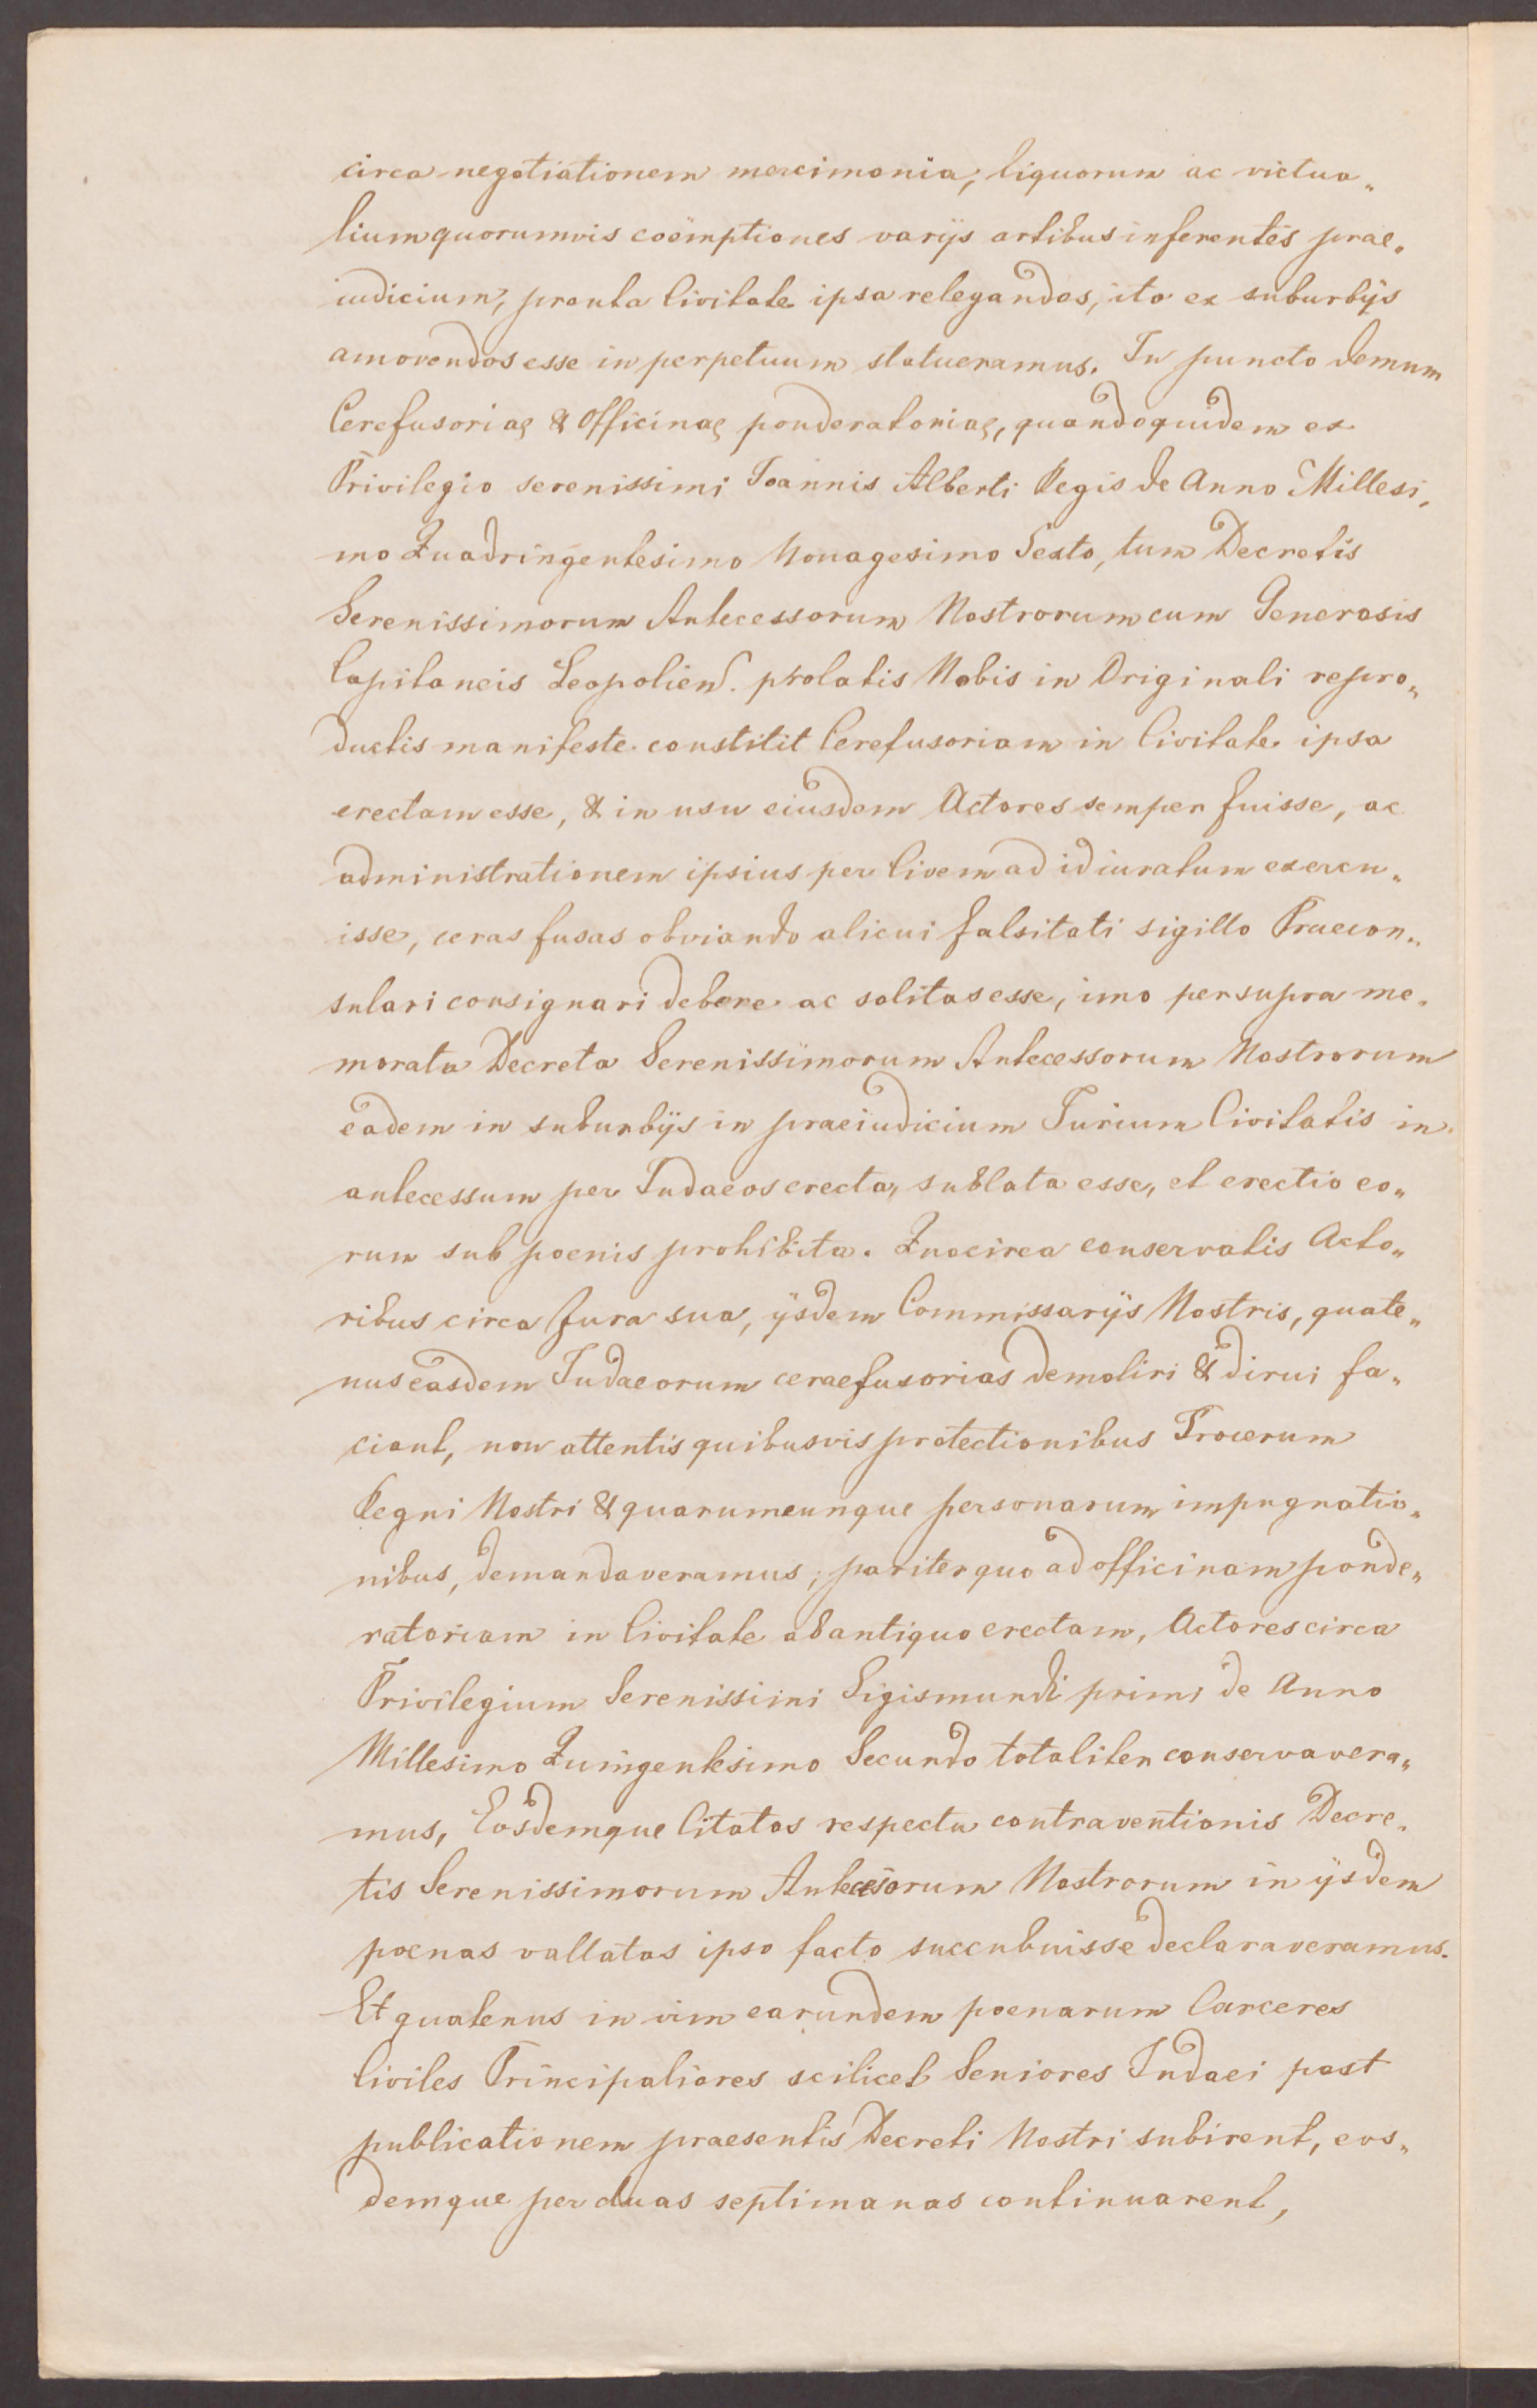 circa negotiationem mercimonia, liquorum ac victua„
lium quorumvis coëmptiones varijs artibus inferentes prae„
iudicium, prout a Civitate ipsa relegandos, ita ex suburbijs
amovendos esse in perpetuum statueramus. In puncto demum
Cerefusoriae & Officinae ponderatoriae, quandoquidem ex
Privilegio serenissimi Joannis Alberti Regis de Anno Millesi„
mo Quadringentesimo Nonagesimo Sexto, tum Decretis
Serenissimorum Antecessorum Nostrorum cum Generosis
Capitaneis Leopolien. prolatis Nobis in Originali repro„
ductis manifeste constitit Cerefusoriam in Civitate ipsa
erectam esse, & in usu eiusdem Actores semper fuisse, ac
administrationem ipsius per Civem ad id iuratum exercu„
isse, ceras fusas obviando alicui falsitati sigillo Praecon„
sulari consignari debere ac solitas esse, imo per supra me„
morata Decreta Serenissimorum Antecessorum Nostrorum
eadem in suburbijs in praeiudicium Jurium Civitatis in
antecessum per Judaeos erecta, sublata esse, et erectio eo„
rum sub poenis prohibita. Quocirca conservatis Acto„
ribus circa Jura sua, ijsdem Commissarijs Nostris, quate„
nus easdem Judaeorum ceraefusorias demoliri & dirui fa„
ciant, non attentis quibusvis protectionibus Procerum
Regni Nostri & quarumcunque personarum impugnatio„
nibus, demandaveramus; pariter quo ad officinam ponde„
ratoriam in Civitate ab antiquo erectam, Actores circa
Privilegium Serenissimi Sigismundi primi de Anno
Millesimo Quingentesimo Secundo totaliter conservavera„
mus, Eosdemque Citatos respectu contraventionis Decre„
tis Serenissimorum Antecesorum Nostrorum in ijsdem
poenas vallatas ipso facto succubuisse declaraveramus.
Et quatenus in vim earundem poenarum Carceres
Civiles Principaliores scilicet Seniores Judaei post
publicationem praesentis Decreti Nostri subirent, eos„
demque per duas septimanas continuarent,